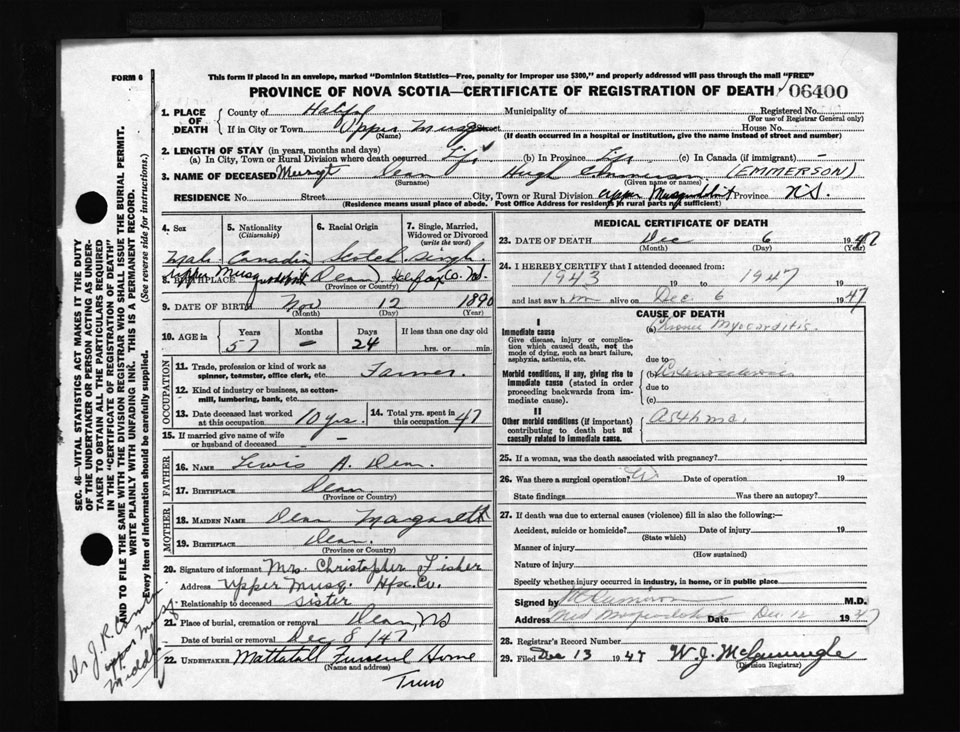 FORM 6
This form if placed in an envelope, marked "Dominion Statistics—Free, penalty for improper use $300," and properly addressed will pass through the mail "FREE"
PROVINCE OF NOVA SCOTIA—CERTIFICATE OF REGISTRATION OF DEATH 06400
1. PLACE OF DEATH County of Halifax Municipality of Registered No.
(For use of Registrar General only)
If in City or Town Upper Musq House No.
(Name) (If death occurred in a hospital or institution, give the name instead of street and number)
2. LENGTH OF STAY (in years, months and days)
(a) In City, Town or Rural Division where death occurred Life (b) In Province Life (c) In Canada (if immigrant) —
3. NAME OF DECEASED Dean Hugh Emmerson (EMMERSON)
(Surname) (Given name or names)
RESIDENCE No. Street City, Town or Rural Division Upper Musquodoboit Province N.S.
(Residence means usual place of abode. Post Office Address for residents in rural parts not sufficient)
4. Sex 5. Nationality (Citizenship) 6. Racial Origin 7. Single, Married, Widowed or Divorced (write the word)
Male Canadian Scotch Single
8. BIRTHPLACE Upper Musquodoboit (Dean) Halifax Co. N.S.
(Province or Country)
9. DATE OF BIRTH Nov 12 1890
(Month) (Day) (Year)
10. AGE in Years Months Days If less than one day old
57 — 24 hrs. or min.
OCCUPATION
11. Trade, profession or kind of work as spinner, teamster, office clerk, etc. Farmer
12. Kind of industry or business, as cotton-mill, lumbering, bank, etc.
13. Date deceased last worked at this occupation 10 yrs. 14. Total yrs. spent in this occupation 47
15. If married give name of wife or husband of deceased —
FATHER
16. NAME Lewis A. Dean
17. BIRTHPLACE Dean
(Province or Country)
MOTHER
18. MAIDEN NAME Dean Margarett
19. BIRTHPLACE Dean
(Province or Country)
20. Signature of informant Mrs. Christopher Fisher
Address Upper Musq. Hfx. Co.
Relationship to deceased Sister
21. Place of burial, cremation or removal Dean, NS
Date of burial or removal Dec 8/47
22. UNDERTAKER Mattatall Funeral Home
(Name and address)
Truro
MEDICAL CERTIFICATE OF DEATH
23. DATE OF DEATH Dec 6 1947
(Month) (Day)
24. I HEREBY CERTIFY that I attended deceased from:
1943 19 to 1947 19
and last saw him alive on Dec 6 1947
CAUSE OF DEATH
I
Immediate cause (a) Chronic Myocarditis
Give disease, injury or complication which caused death, not the mode of dying, such as heart failure, asphyxia, asthenia, etc.
due to
Morbid conditions, if any, giving rise to immediate cause (stated in order proceeding backwards from immediate cause). (b) Arteriosclerosis
due to
(c)
II
Other morbid conditions (if important) contributing to death but not causally related to immediate cause. Asthma
25. If a woman, was the death associated with pregnancy?
26. Was there a surgical operation? Date of operation 19
State findings Was there an autopsy?
27. If death was due to external causes (violence) fill in also the following:—
Accident, suicide or homicide? Date of injury 19
(State which)
Manner of injury
(How sustained)
Nature of injury
Specify whether injury occurred in industry, in home, or in public place
Signed by M.D.
Address Mid Musquodoboit Date Dec 12 1947
28. Registrar's Record Number
29. Filed Dec 13 1947 W. J.
(Division Registrar)
SEC. 46—VITAL STATISTICS ACT MAKES IT THE DUTY OF THE UNDERTAKER OR PERSON ACTING AS UNDERTAKER TO OBTAIN ALL THE PARTICULARS REQUIRED IN THE "CERTIFICATE OF REGISTRATION OF DEATH" AND TO FILE THE SAME WITH THE DIVISION REGISTRAR WHO SHALL ISSUE THE BURIAL PERMIT.
WRITE PLAINLY WITH UNFADING INK. THIS IS A PERMANENT RECORD.
Every item of information should be carefully supplied. (See reverse side for instructions.)
Dr J. R.
Upper Musq